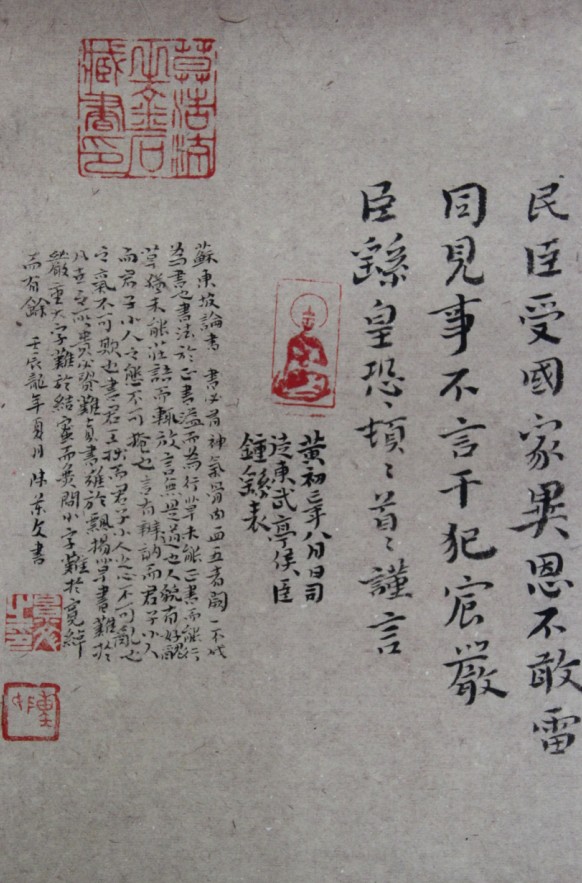 民臣受國家異恩不敢雷
同見事不言干犯宸嚴
臣繇皇恐〻頓〻首〻謹言
黃初二年八月日司
徒東武亭侯臣
鍾繇表
蘇東坡論書 書必有神氣骨肉血五者闕一不成
為書也書法於正書溢而為行草未能正書而能行
草猶未能莊語而輒放言無是道也人貌有好醜
而君子小人之態不可掩也言有辯訥而君子小人
之氣不可欺也書有工拙而君子小人之心不可亂也
凡世之所貴必貴難真書難於飄揚草書難於
嚴重大字難於結密而無間小字難於寬綽
而有餘 壬辰龍年夏月 陳 文書
藏書印